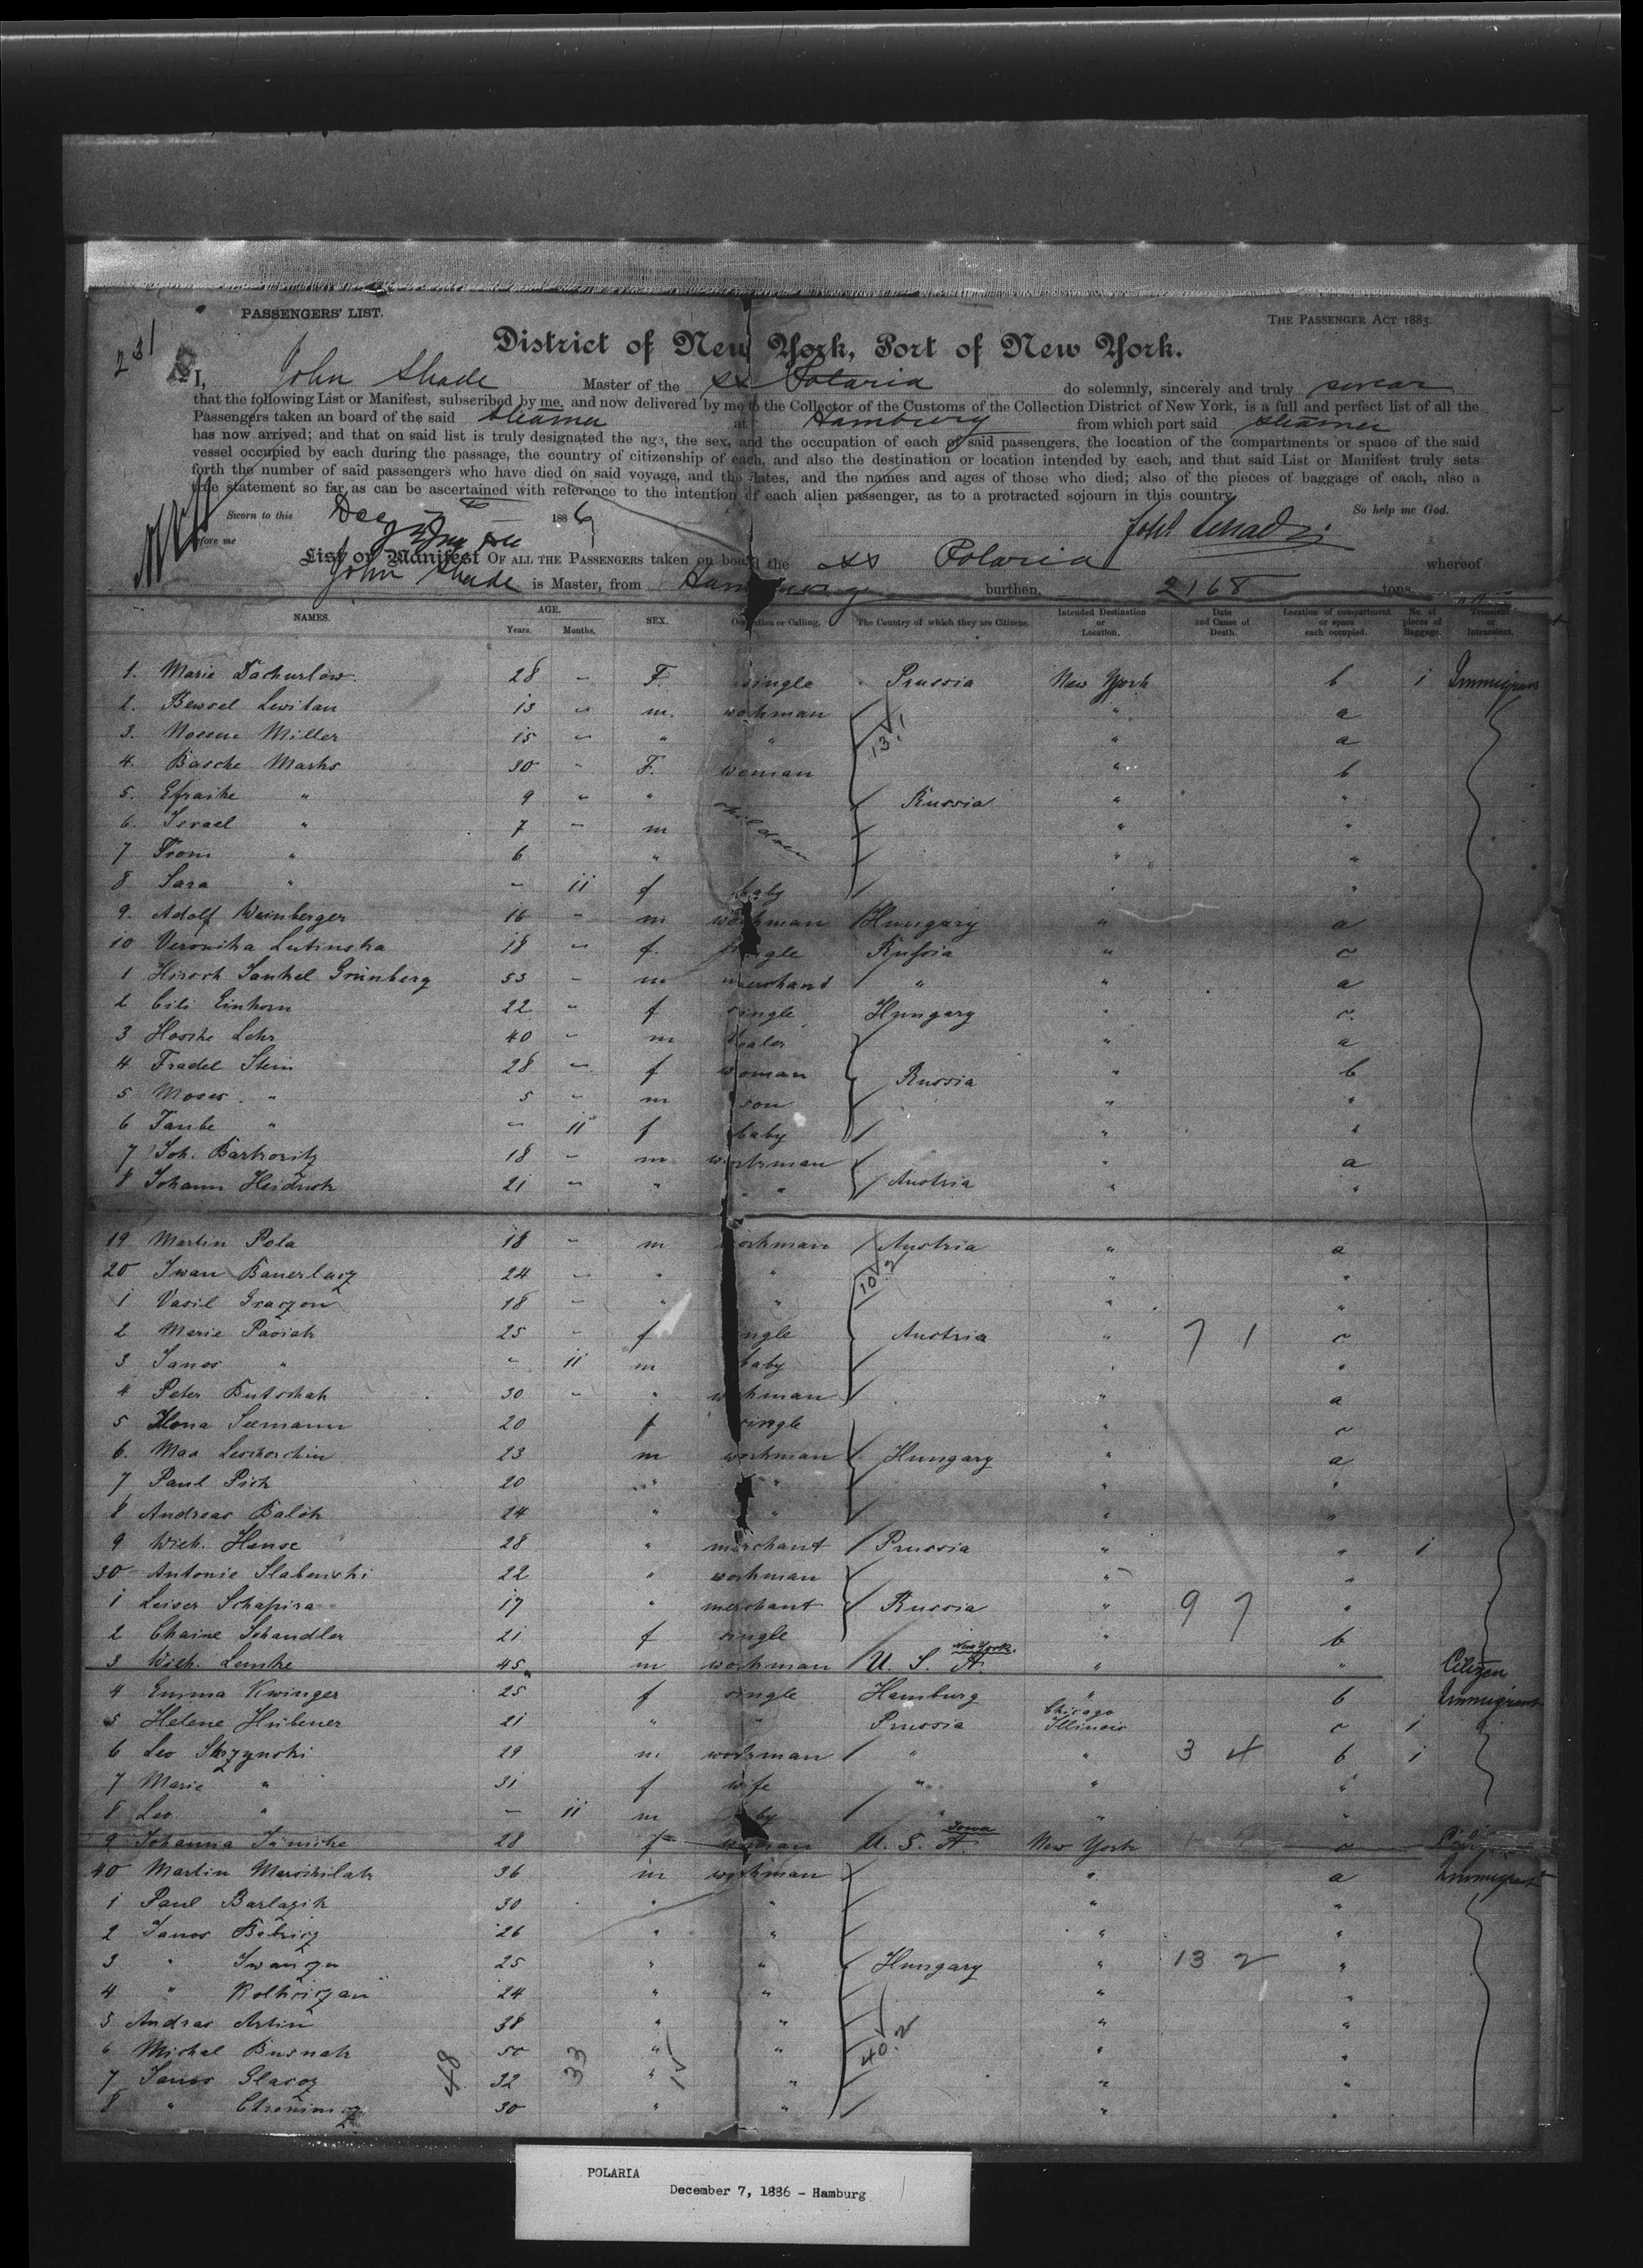 PASSENGERS' LIST. THE PASSENGER ACT 1883.
231
District of New York, Port of New York.
I, John Shade Master of the SS Polaria do solemnly, sincerely and truly swear
that the following List or Manifest, subscribed by me, and now delivered by me to the Collector of the Customs of the Collection District of New York, is a full and perfect list of all the
Passengers taken an board of the said steamer at Hamburg from which port said steamer
has now arrived; and that on said list is truly designated the age, the sex, and the occupation of each of said passengers, the location of the compartments or space of the said
vessel occupied by each during the passage, the country of citizenship of each, and also the destination or location intended by each, and that said List or Manifest truly sets
forth the number of said passengers who have died on said voyage, and the dates, and the names and ages of those who died; also of the pieces of baggage of each, also a
true statement so far as can be ascertained with reference to the intention of each alien passenger, as to a protracted sojourn in this country.
Sworn to this Dec 7 1886 So help me God.
before me
List or Manifest OF ALL THE PASSENGERS taken on board the SS Polaria whereof
John Shade is Master, from Hamburg burthen, 2168 tons
NAMES. AGE. Years. Months. SEX. Occupation or Calling. The Country of which they are Citizens. Intended Destination or Location. Date and Cause of Death. Location of compartment or space each occupied. No. of pieces of Baggage. Transient or Intransient.
1. Marie Dachurlow. 28 - F. single Prussia New York b 1 Immigrant
2. Bewsel Lewitan 13 - m. workman " a
3. Nossen Miller 15 - " " " a
4. Basche Marks 30 - F. woman " b
5. Efraike " 9 - " children Russia " "
6. Israel " 7 - m " "
7 From " 6 " " "
8 Sara " - 11 f baby " "
9. Adolf Weinberger 16 - m workman Hungary " a
10 Veronika Lutinska 18 - f. single Russia " c
1 Hirsch Jankel Grünberg 53 - m merchant " " a
2 Cili Einhorn 22 - f single Hungary " c.
3 Hoske Lehr 40 - m dealer " a
4 Fradel Stein 28 - f woman Russia " b
5 Moses " 5 - m son " "
6 Taube " - 11 f baby " "
7 Joh. Bartkovitz 18 - m workman " a
8 Johann Heidrich 21 - " " Austria " "
19 Martin Pola 18 - m workman Austria " a
20 Iwan Bauerlacz 24 - " " " "
1 Vasil Graczon 18 - " " " "
2 Marie Pasiak 25 - f single Austria " 7 1 c
3 Janos " - 11 m baby " "
4 Peter Butschak 30 - " workman " a
5 Ilona Seemann 20 f single " c
6. Max Leschorchin 23 m workman Hungary " a
7 Paul Pick 20 " " " "
8 Andreas Balok 24 " " " "
9 Wilh. Hense 28 " merchant Prussia " " 1
30 Antonie Slabenski 22 " workman " "
1 Leiser Schapira 17 " merchant Russia " 9 7 "
2 Chaine Schandler 21 f single " b
3 Wilh. Lemke 45 m workman U. S. A. New York. " " Citizen
4 Emma Kwinger 25 f single Hamburg " b Immigrant
5 Helene Hübener 21 " " Prussia Chicago Illinois c 1
6 Leo Skrzynski 29 m workman " " 3 4 b 1
7 Marie " 31 f wife " " "
8 Leo " - 11 m baby " " "
9 Johanna Jänicke 28 f woman U. S. A. Iowa New York c
40 Martin Marcikilak 36 m workman " a Immigrant
1 Paul Barlazik 30 " " " "
2 Janos 26 " " " "
3 " Iwanzu 25 " " Hungary " 13 2 "
4 " 24 " " " "
5 Andras Artim 38 " " " "
6 Michal Busnak 50 " " " "
7 Janos Glacoz 32 " " " "
8 " 30 " " " "
48 33 15
13.1
10.2
40.2
POLARIA
December 7, 1886 - Hamburg